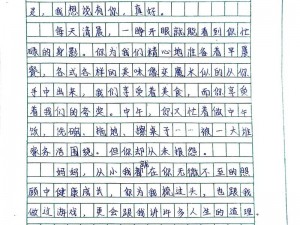 是，我想说有你，真好。
每天清晨，一睁开眼就能看到你忙
碌的身影。你为我们精心地准备着早晨
餐，各式各样的美味像变魔术似的从你
手中出来，我们享受着美食，而你享受
着我们的夸奖。中午，你又忙着做中午
饭，洗碗，拖地，缠菜于……被一大堆
家务活围绕。但你却从未抱怨。
妈妈，从小我都在你无微不至的照
顾中健康成长，你为我挨过头，也跟我
做过游戏，更会跟我讲许多人生的道理